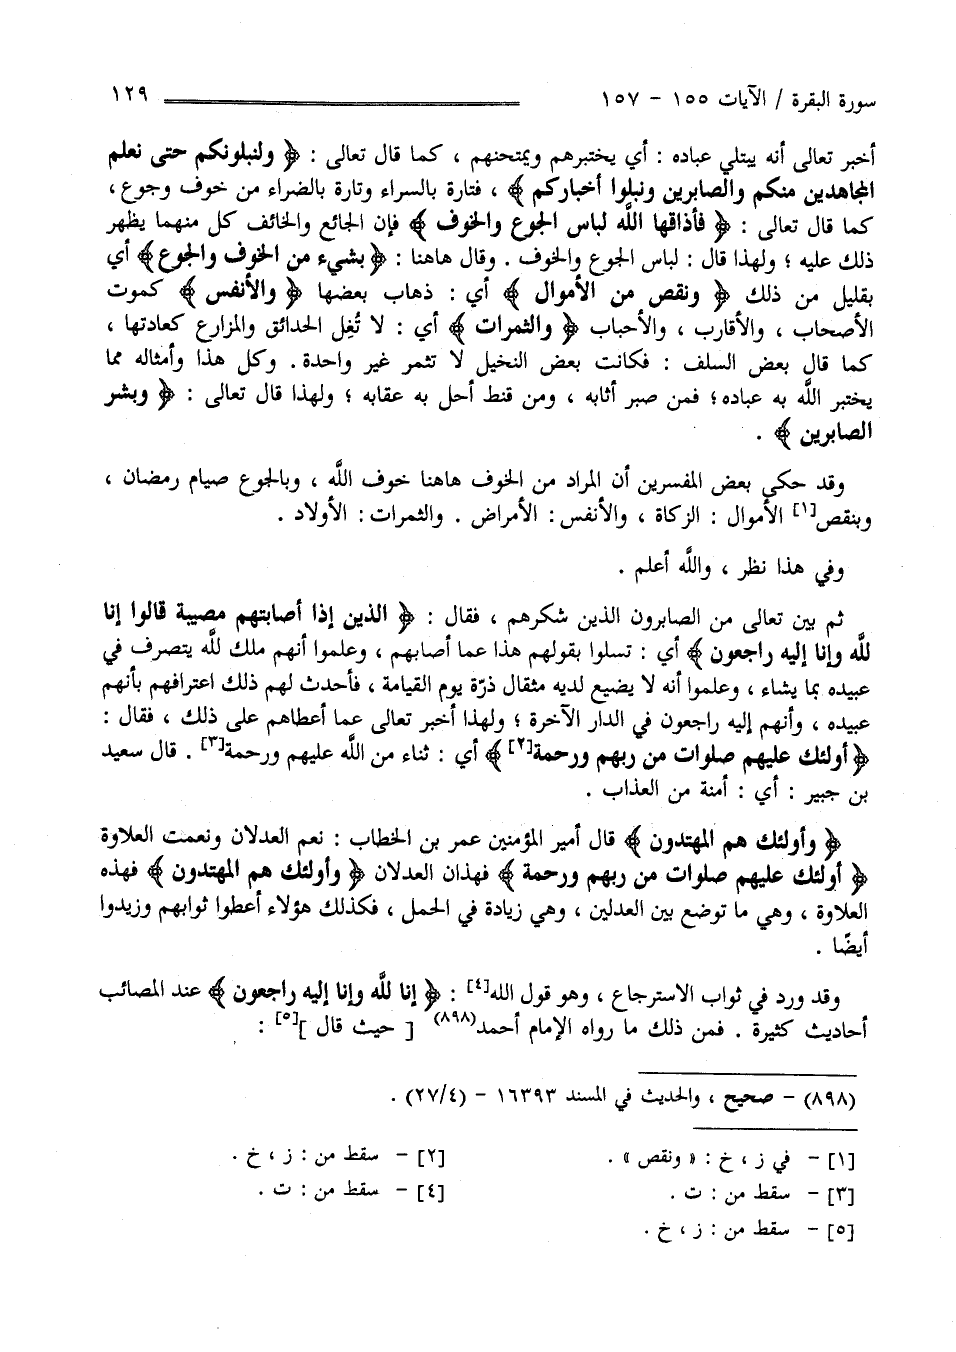 سورة البقرة / الآيات ١٥٥ - ١٥٧ ١٢٩
أخبر تعالى أنه يبتلي عباده : أي يختبرهم ويمتحنهم ، كما قال تعالى : ﴿ ولنبلونكم حتى نعلم
المجاهدين منكم والصابرين ونبلوا أخباركم ﴾ ، فتارة بالسراء وتارة بالضراء من خوف وجوع ،
كما قال تعالى : ﴿ فأذاقها الله لباس الجوع والخوف ﴾ فإن الجائع والخائف كل منهما يظهر
ذلك عليه ؛ ولهذا قال : لباس الجوع والخوف . وقال هاهنا : ﴿ بشيء من الخوف والجوع ﴾ أي
بقليل من ذلك ﴿ ونقص من الأموال ﴾ أي : ذهاب بعضها ﴿ والأنفس ﴾ كموت
الأصحاب ، والأقارب ، والأحباب ﴿ والثمرات ﴾ أي : لا تُغِل الحدائق والمزارع كعادتها ،
كما قال بعض السلف : فكانت بعض النخيل لا تثمر غير واحدة . وكل هذا وأمثاله مما
يختبر الله به عباده ؛ فمن صبر أثابه ، ومن قنط أحل به عقابه ؛ ولهذا قال تعالى : ﴿ وبشر
الصابرين ﴾ .
وقد حكى بعض المفسرين أن المراد من الخوف هاهنا خوف الله ، وبالجوع صيام رمضان ،
وبنقص[١] الأموال : الزكاة ، والأنفس : الأمراض . والثمرات : الأولاد .
وفي هذا نظر ، والله أعلم .
ثم بين تعالى من الصابرون الذين شكرهم ، فقال : ﴿ الذين إذا أصابتهم مصيبة قالوا إنا
لله وإنا إليه راجعون ﴾ أي : تسلوا بقولهم هذا عما أصابهم ، وعلموا أنهم ملك لله يتصرف في
عبيده بما يشاء ، وعلموا أنه لا يضيع لديه مثقال ذرّة يوم القيامة ، فأحدث لهم ذلك اعترافهم بأنهم
عبيده ، وأنهم إليه راجعون في الدار الآخرة ؛ ولهذا أخبر تعالى عما أعطاهم على ذلك ، فقال :
﴿ أولئك عليهم صلوات من ربهم ورحمة[٢] ﴾ أي : ثناء من الله عليهم ورحمة[٣] . قال سعيد
بن جبير : أي : أمنة من العذاب .
﴿ وأولئك هم المهتدون ﴾ قال أمير المؤمنين عمر بن الخطاب : نعم العدلان ونعمت العلاوة
﴿ أولئك عليهم صلوات من ربهم ورحمة ﴾ فهذان العدلان ﴿ وأولئك هم المهتدون ﴾ فهذه
العلاوة ، وهي ما توضع بين العدلين ، وهي زيادة في الحمل ، فكذلك هؤلاء أعطوا ثوابهم وزيدوا
أيضًا .
وقد ورد في ثواب الاسترجاع ، وهو قول الله[٤] : ﴿ إنا لله وإنا إليه راجعون ﴾ عند المصائب
أحاديث كثيرة . فمن ذلك ما رواه الإمام أحمد(٨٩٨) [ حيث قال ][٥] :
(٨٩٨) - صحيح ، والحديث في المسند ١٦٣٩٣ - (٢٧/٤) .
[١] - في ز ، خ : « ونقص » . [٢] - سقط من : ز ، خ .
[٣] - سقط من : ت . [٤] - سقط من : ت .
[٥] - سقط من : ز ، خ .